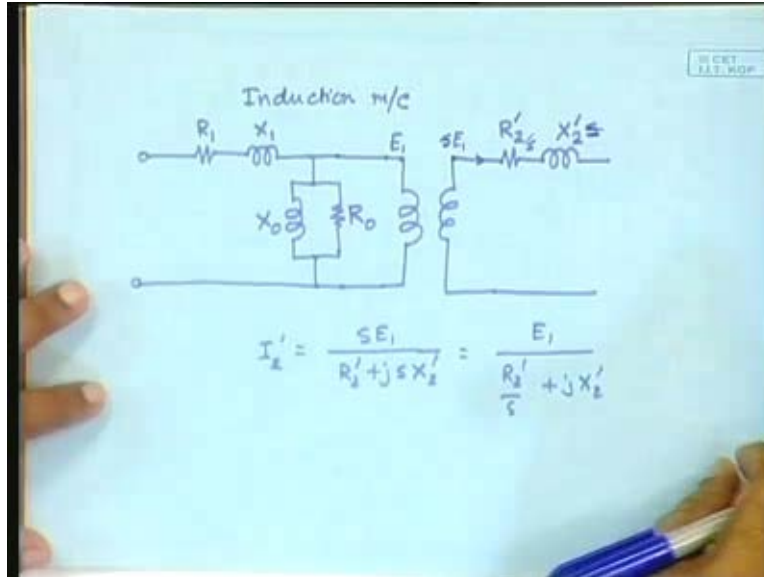 © CET
I.I.T. KGP
Induction m/c
R₁ X₁ E₁ sE₁ R₂'s X₂'s
X₀ R₀
I₂' = sE₁ / (R₂' + j s X₂') = E₁ / (R₂'/s + j X₂')